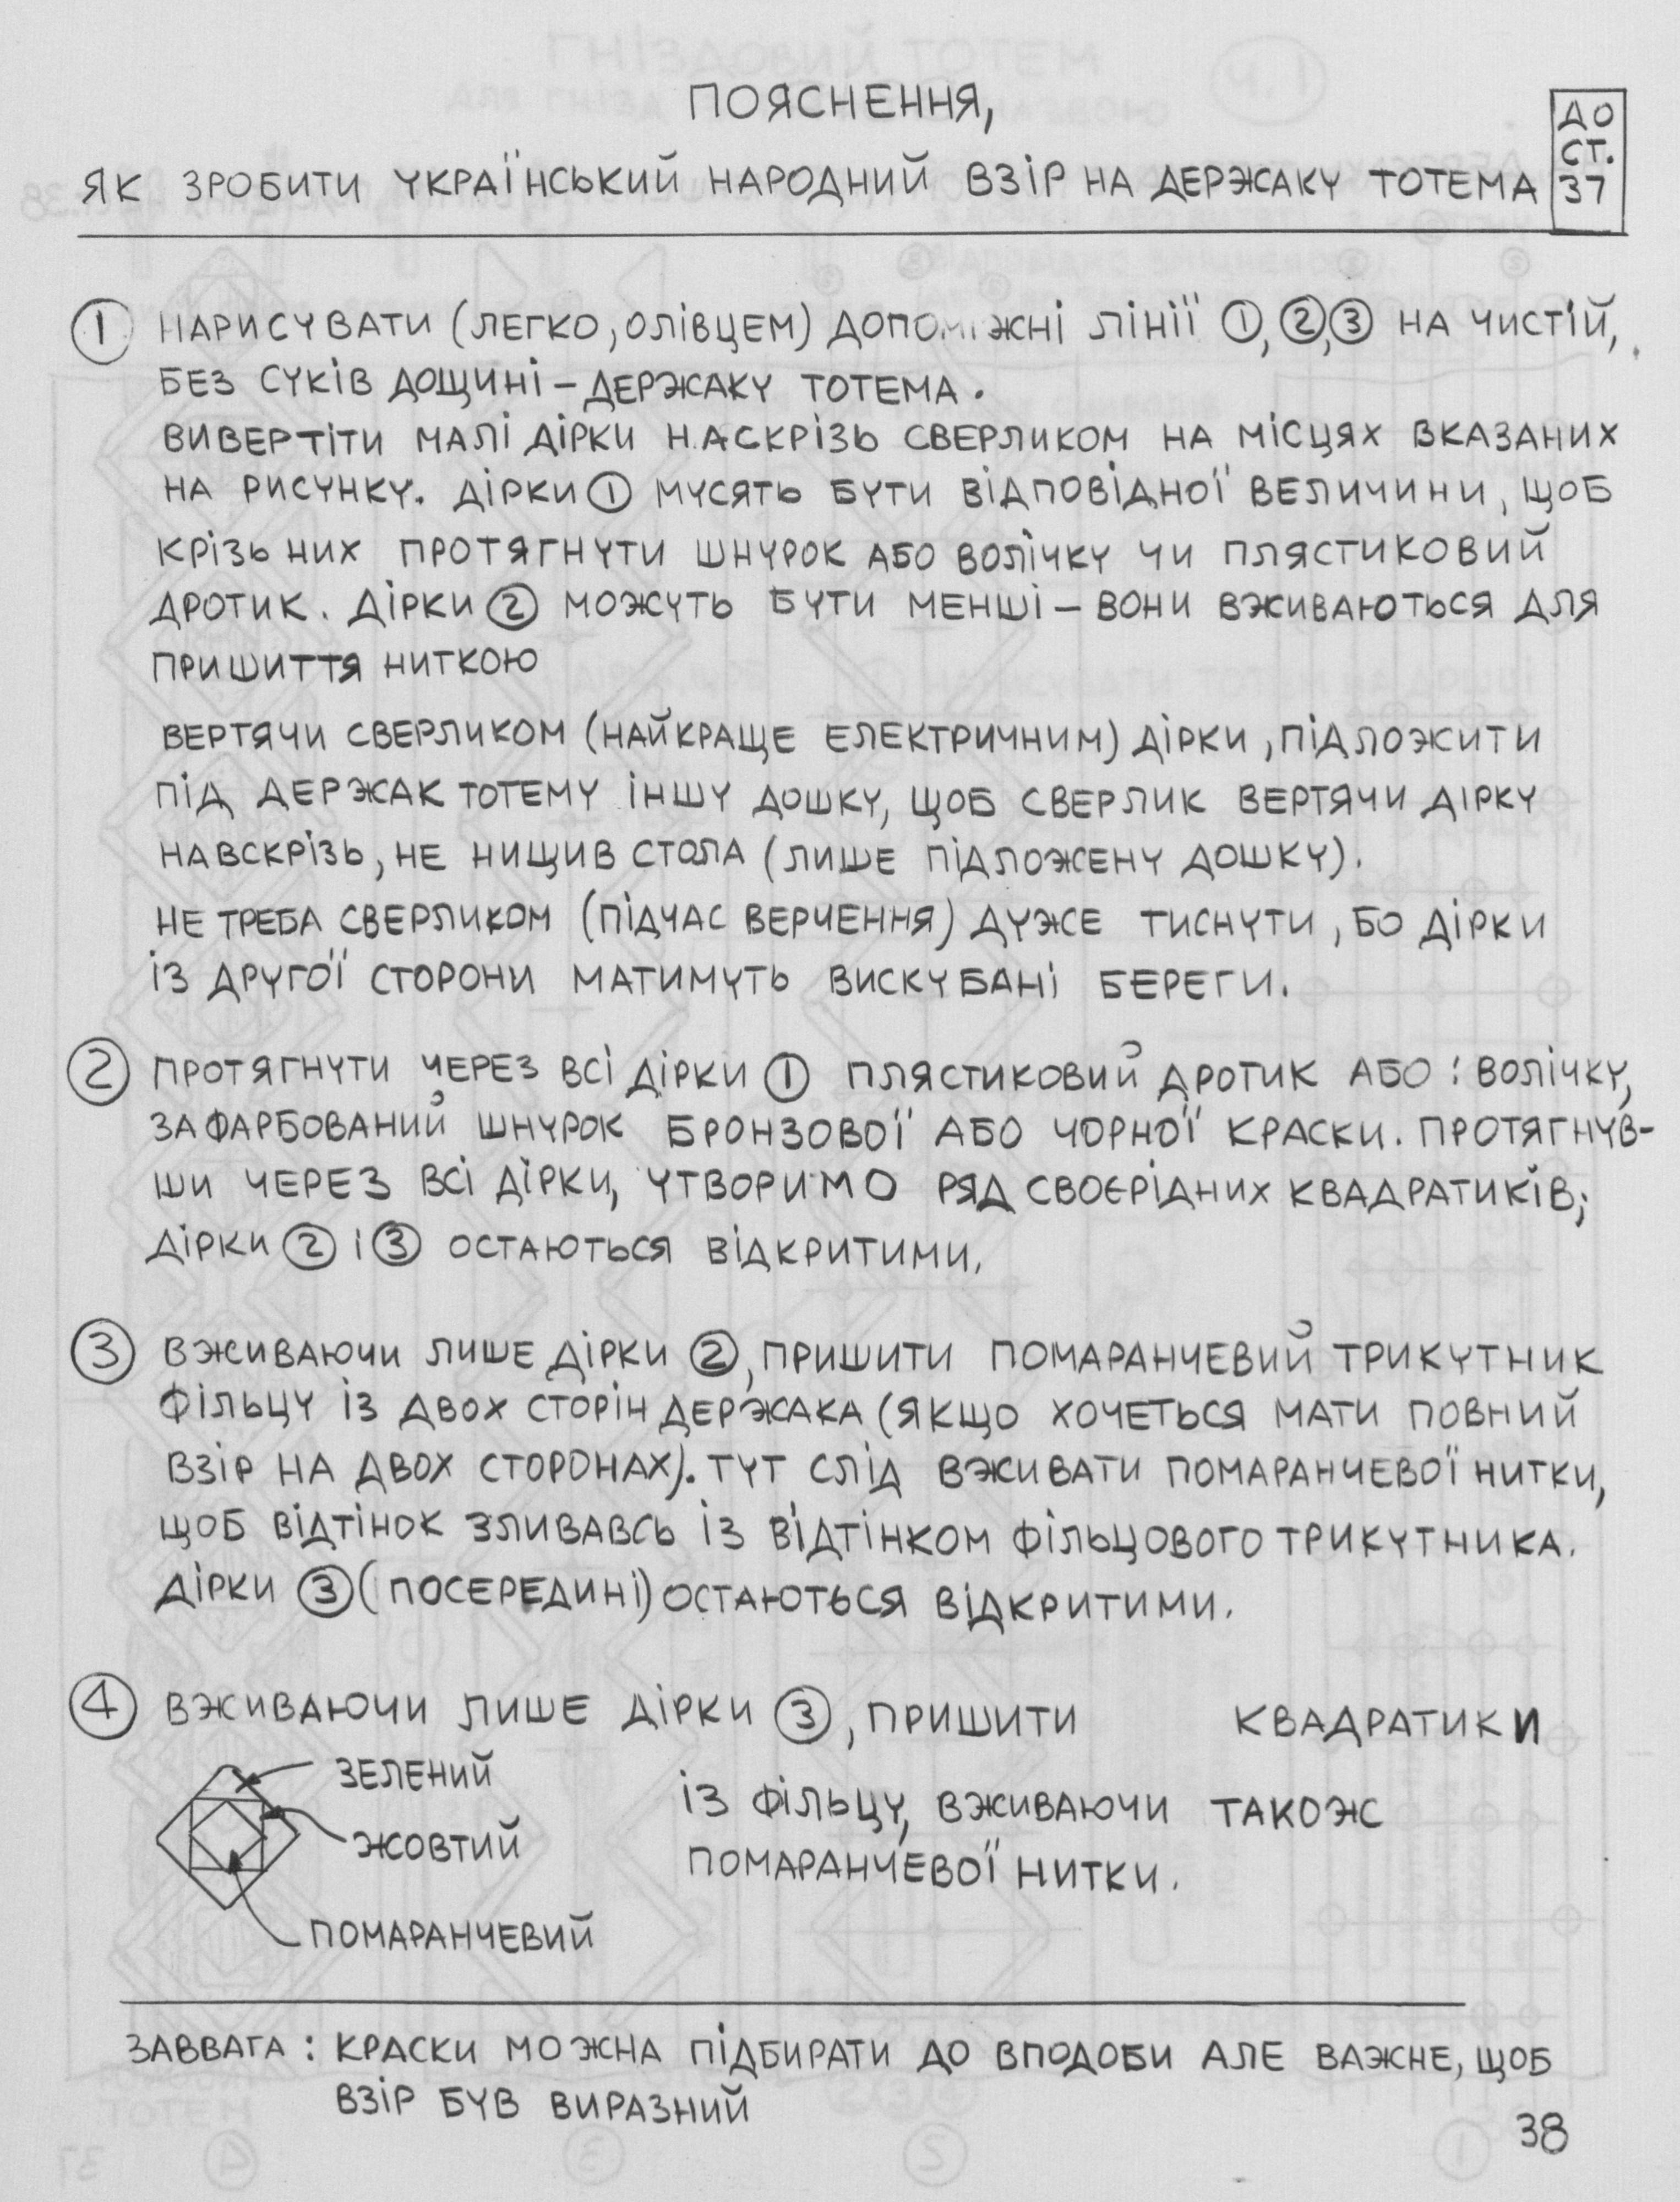 ПОЯСНЕННЯ,
ЯК ЗРОБИТИ УКРАЇНСЬКИЙ НАРОДНИЙ ВЗІР НА ДЕРЖАКУ ТОТЕМА
ДО
СТ.
37
① НАРИСУВАТИ (ЛЕГКО, ОЛІВЦЕМ) ДОПОМІЖНІ ЛІНІЇ ①, ②, ③ НА ЧИСТІЙ,
БЕЗ СУКІВ ДОЩИНІ – ДЕРЖАКУ ТОТЕМА.
ВИВЕРТІТИ МАЛІ ДІРКИ НАСКРІЗЬ СВЕРЛИКОМ НА МІСЦЯХ ВКАЗАНИХ
НА РИСУНКУ. ДІРКИ ① МУСЯТЬ БУТИ ВІДПОВІДНОЇ ВЕЛИЧИНИ, ЩОБ
КРІЗЬ НИХ ПРОТЯГНУТИ ШНУРОК АБО ВОЛІЧКУ ЧИ ПЛЯСТИКОВИЙ
ДРОТИК. ДІРКИ ② МОЖУТЬ БУТИ МЕНШІ – ВОНИ ВЖИВАЮТЬСЯ ДЛЯ
ПРИШИТТЯ НИТКОЮ
ВЕРТЯЧИ СВЕРЛИКОМ (НАЙКРАЩЕ ЕЛЕКТРИЧНИМ) ДІРКИ, ПІДЛОЖИТИ
ПІД ДЕРЖАК ТОТЕМУ ІНШУ ДОШКУ, ЩОБ СВЕРЛИК ВЕРТЯЧИ ДІРКУ
НАВСКРІЗЬ, НЕ НИЩИВ СТОЛА (ЛИШЕ ПІДЛОЖЕНУ ДОШКУ).
НЕ ТРЕБА СВЕРЛИКОМ (ПІДЧАС ВЕРЧЕННЯ) ДУЖЕ ТИСНУТИ, БО ДІРКИ
ІЗ ДРУГОЇ СТОРОНИ МАТИМУТЬ ВИСКУБАНІ БЕРЕГИ.
② ПРОТЯГНУТИ ЧЕРЕЗ ВСІ ДІРКИ ① ПЛЯСТИКОВИЙ ДРОТИК АБО: ВОЛІЧКУ,
ЗАФАРБОВАНИЙ ШНУРОК БРОНЗОВОЇ АБО ЧОРНОЇ КРАСКИ. ПРОТЯГНУВ-
ШИ ЧЕРЕЗ ВСІ ДІРКИ, УТВОРИМО РЯД СВОЄРІДНИХ КВАДРАТИКІВ;
ДІРКИ ② І ③ ОСТАЮТЬСЯ ВІДКРИТИМИ.
③ ВЖИВАЮЧИ ЛИШЕ ДІРКИ ②, ПРИШИТИ ПОМАРАНЧЕВИЙ ТРИКУТНИК
ФІЛЬЦУ ІЗ ДВОХ СТОРІН ДЕРЖАКА (ЯКЩО ХОЧЕТЬСЯ МАТИ ПОВНИЙ
ВЗІР НА ДВОХ СТОРОНАХ). ТУТ СЛІД ВЖИВАТИ ПОМАРАНЧЕВОЇ НИТКИ,
ЩОБ ВІДТІНОК ЗЛИВАВСЬ ІЗ ВІДТІНКОМ ФІЛЬЦОВОГО ТРИКУТНИКА.
ДІРКИ ③ (ПОСЕРЕДИНІ) ОСТАЮТЬСЯ ВІДКРИТИМИ.
④ ВЖИВАЮЧИ ЛИШЕ ДІРКИ ③, ПРИШИТИ КВАДРАТИКИ
ІЗ ФІЛЬЦУ, ВЖИВАЮЧИ ТАКОЖ
ПОМАРАНЧЕВОЇ НИТКИ.
ЗЕЛЕНИЙ
ЖОВТИЙ
ПОМАРАНЧЕВИЙ
ЗАВВАГА: КРАСКИ МОЖНА ПІДБИРАТИ ДО ВПОДОБИ АЛЕ ВАЖНЕ, ЩОБ
ВЗІР БУВ ВИРАЗНИЙ
38